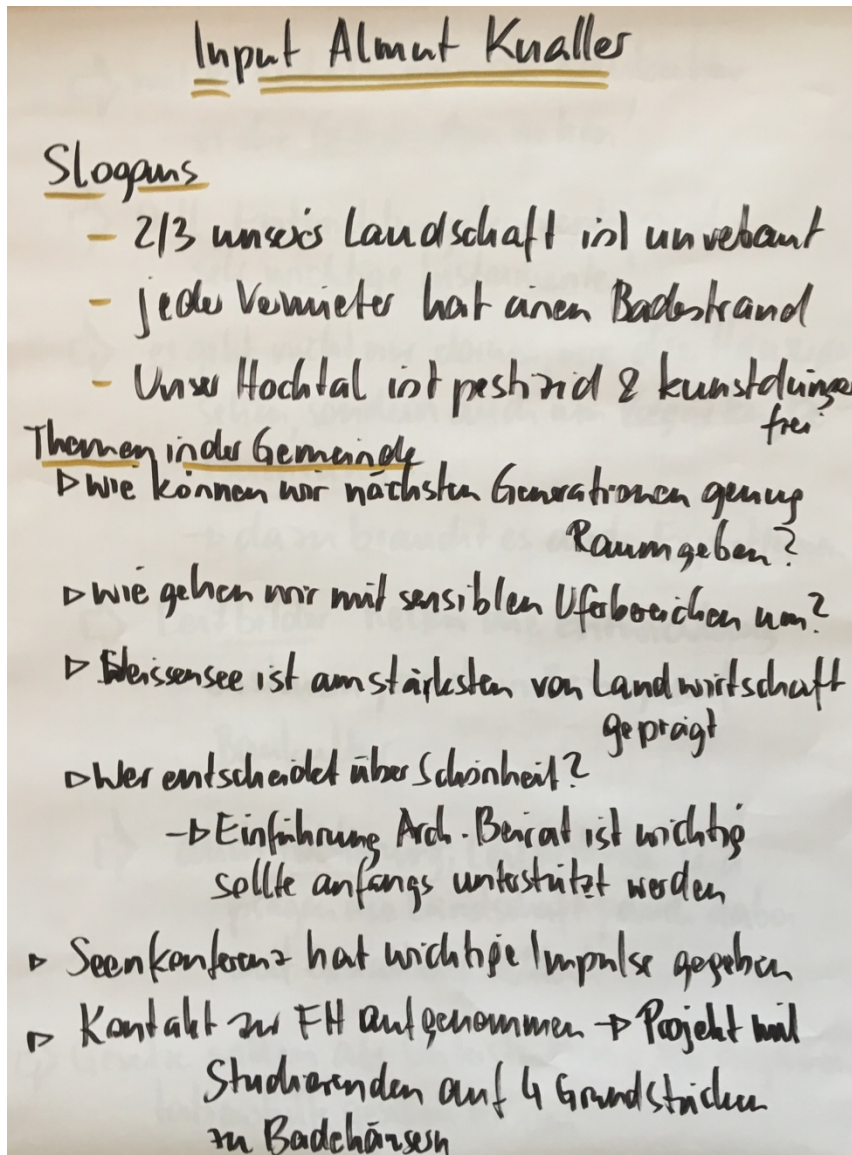 Input Almut Knaller
Slogans
- 2/3 unseres Landschaft ist unverbaut
- jeder Vermieter hat einen Badestrand
- Unser Hochtal ist pestizid & kunstdünger
frei
Themen in der Gemeinde
▷ wie können wir nächsten Generationen genug
Raum geben?
▷ wie gehen wir mit sensiblen Uferbereichen um?
▷ Weissensee ist am stärksten von Landwirtschaft
geprägt
▷ Wer entscheidet über Schönheit?
→ Einführung Arch. Beirat ist wichtig
sollte anfangs unterstützt werden
▷ Seenkonferenz hat wichtige Impulse gegeben
▷ Kontakt zur FH aufgenommen → Projekt mit
Studierenden auf 4 Grundstücken
zu Badehäusern